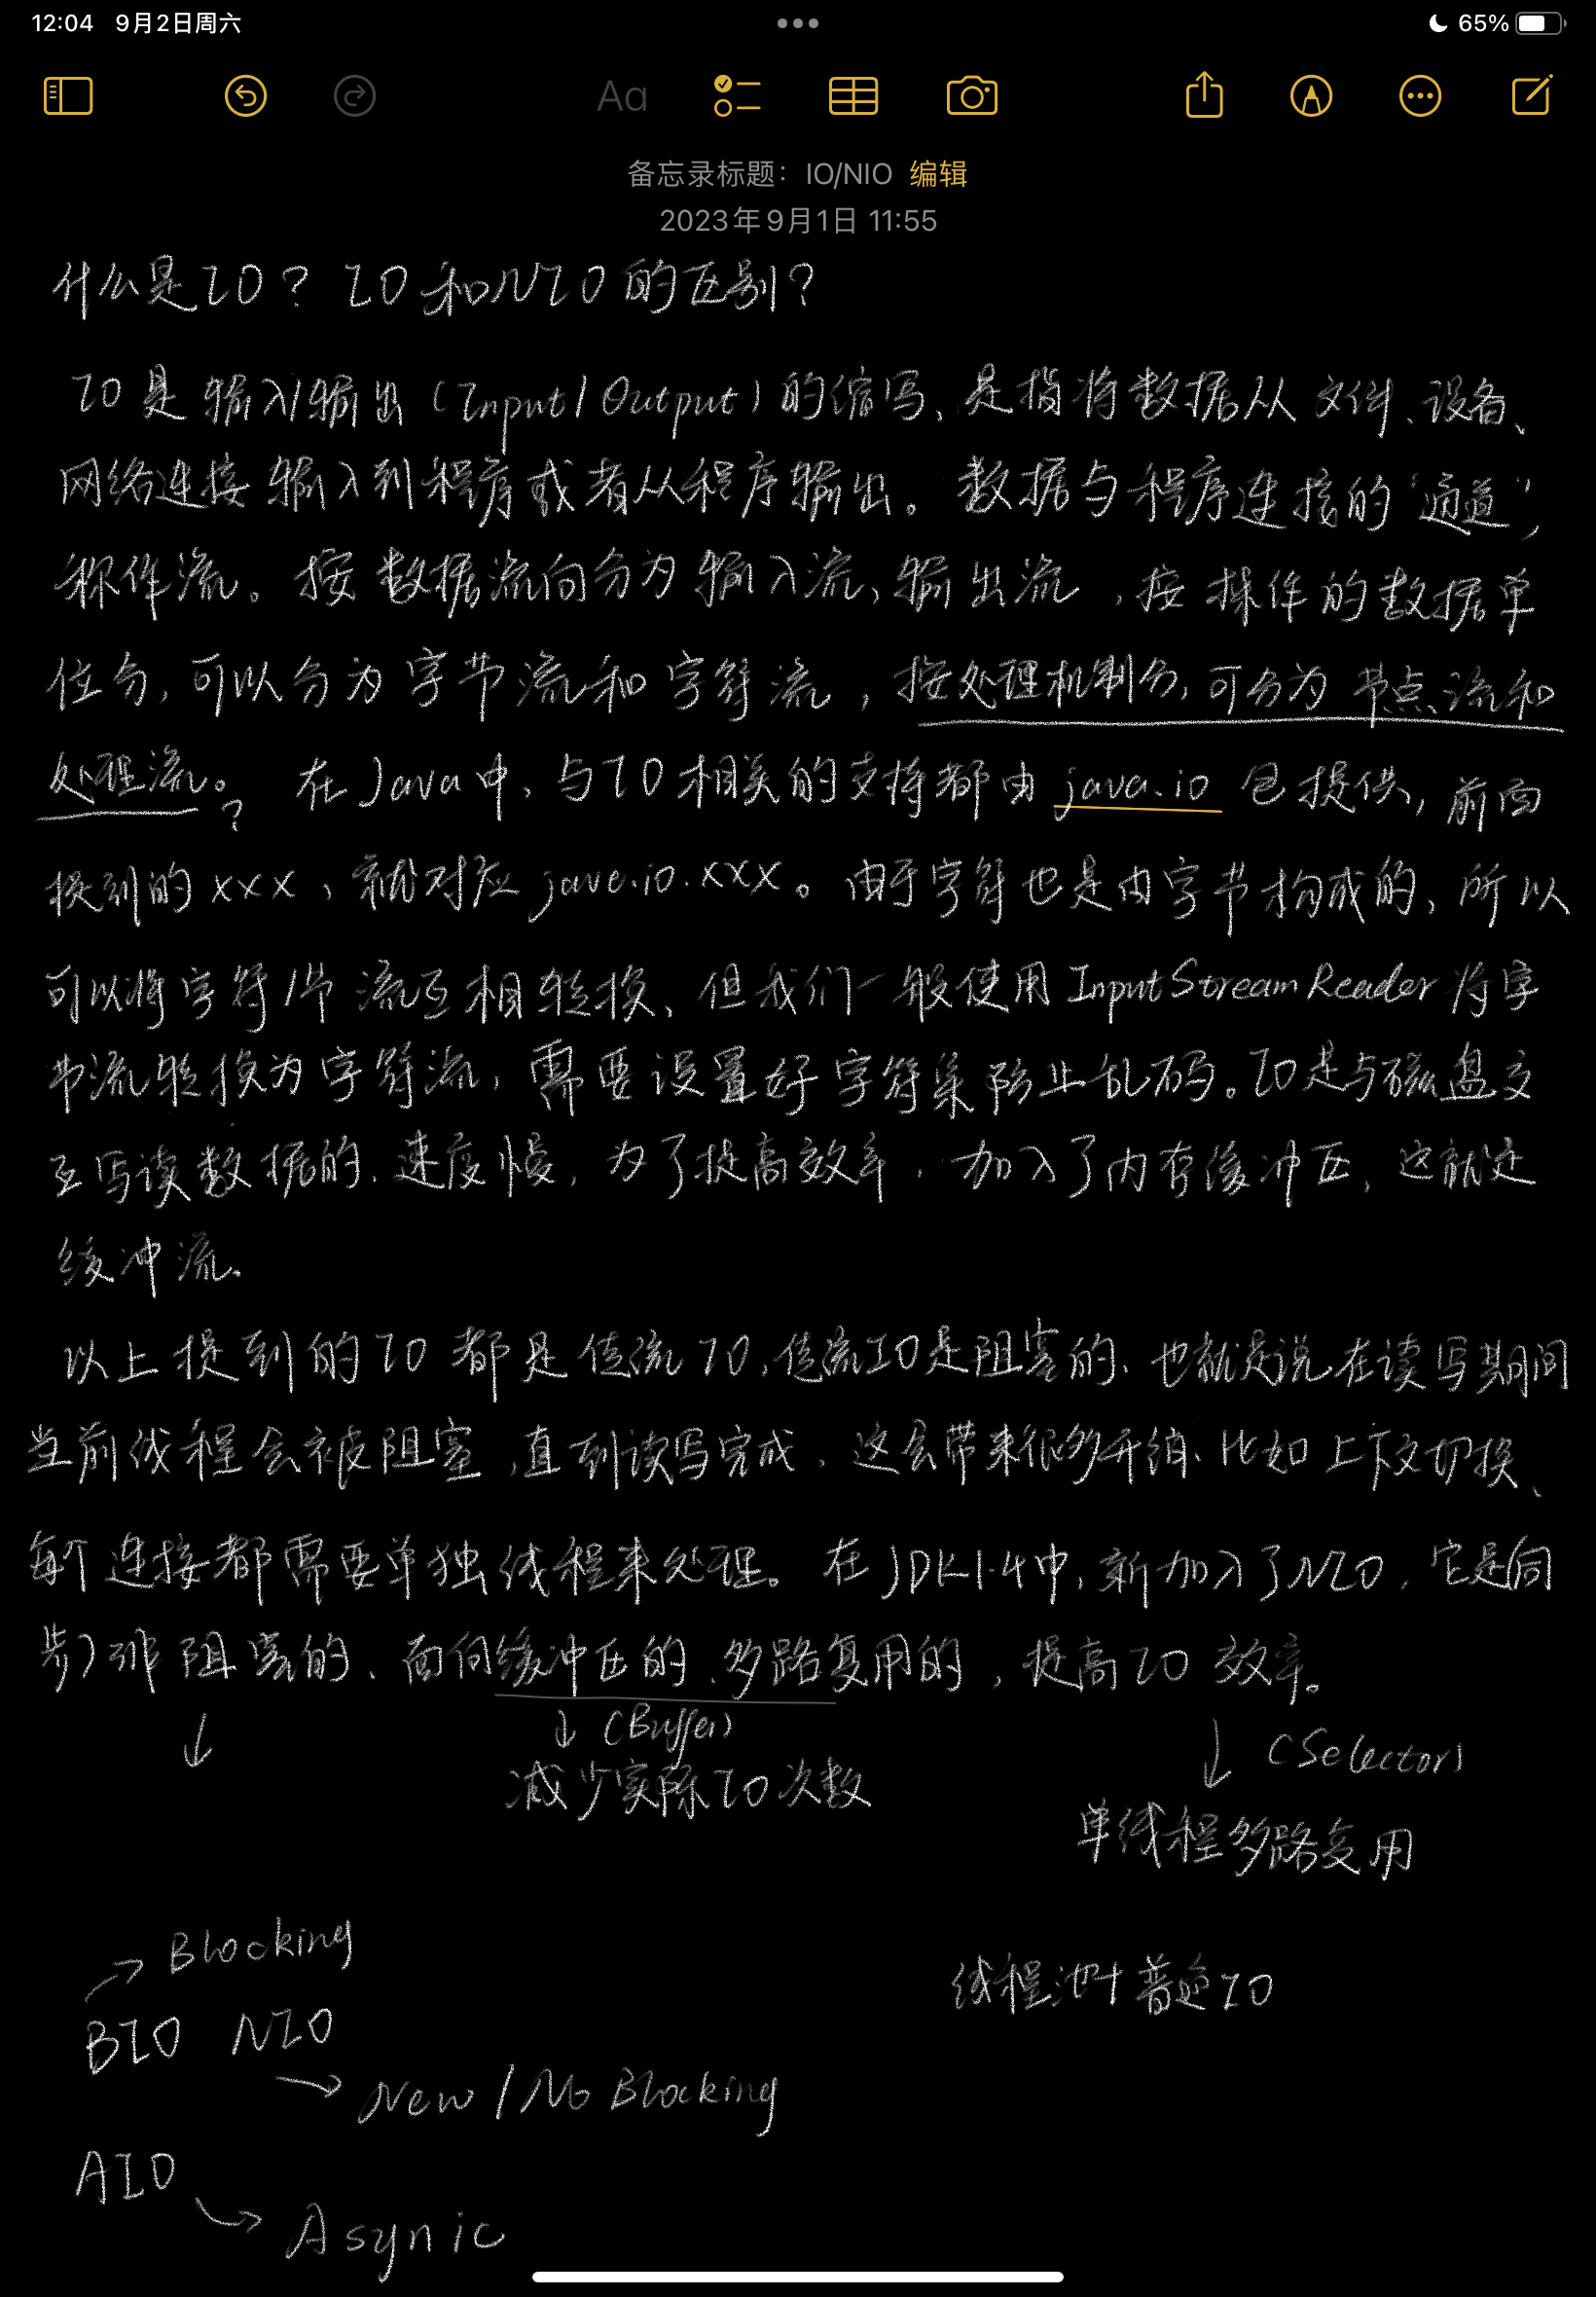 12:04 9月2日周六
65%
Aa
备忘录标题：IO/NIO 编辑
2023年9月1日 11:55
什么是IO？IO和NIO的区别？
IO是输入/输出（Input/Output）的缩写、是指将数据从文件、设备、
网络连接输入到程序或者从程序输出。数据与程序连接的“通道”，
称作流。按数据流向分为输入流、输出流，按操作的数据单
位分，可以分为字节流和字符流，按处理机制分，可分为节点流和
处理流。？在Java中，与IO相关的支持都由java.io包提供，前面
提到的xxx，就对应java.io.xxx。由于字符也是由字节构成的、所以
可以将字符/节流互相转换、但我们一般使用InputStreamReader将字
节流转换为字符流，需要设置好字符集防止乱码。IO是与磁盘交
互写读数据的、速度慢，为了提高效率，加入了内存缓冲区，这就是
缓冲流、
以上提到的IO都是传统IO，传统IO是阻塞的、也就是说在读写期间
当前线程会被阻塞，直到读写完成、这会带来很多开销、比如上下文切换、
每个连接都需要单独线程来处理。在JDK1.4中，新加入了NIO，它是同
步）非阻塞的、面向缓冲区的、多路复用的，提高IO效率。
↓ ↓（Buffer） ↓（Selector）
减少实际IO次数
单线程多路复用
→ Blocking
线程池+普通IO
BIO NIO
→ New / No Blocking
AIO
→ Asynic